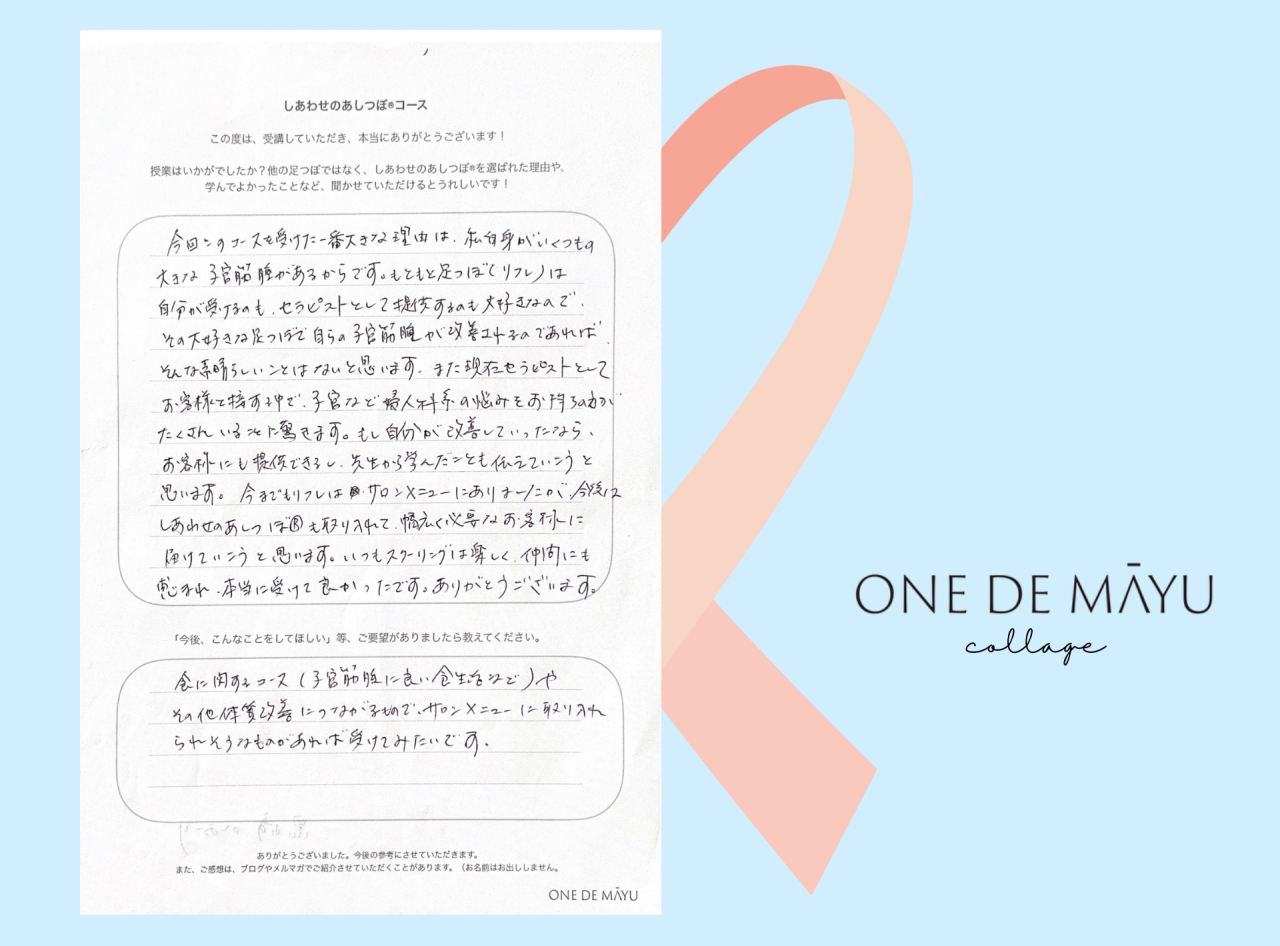 しあわせのあしつぼ®コース
この度は、受講していただき、本当にありがとうございます！
授業はいかがでしたか？他の足つぼではなく、しあわせのあしつぼ®を選ばれた理由や、
学んでよかったことなど、聞かせていただけるとうれしいです！
今回このコースを受けた一番大きな理由は、私自身がいくつもの
大きな子宮筋腫があるからです。もともと足つぼ(リフレ)は
自分が受けるのも、セラピストとして提供するのも大好きなので、
その大好きな足つぼで自らの子宮筋腫が改善されるのであれば、
そんな素晴らしいことはないと思います。また現在セラピストとして
お客様と接する中で、子宮など婦人科系の悩みをお持ちの方が
たくさんいることに驚きます。もし自分が改善していったなら、
お客様にも提供できるし、先生から学んだことも伝えていこうと
思います。今までもリフレはサロンメニューにありましたが、今後は
しあわせのあしつぼ®も取り入れて、幅広く必要なお客様に
届けていこうと思います。いつもスクーリングは楽しく、仲間にも
恵まれ、本当に受けて良かったです。ありがとうございます。
「今後、こんなことをしてほしい」等、ご要望がありましたら教えてください。
食に関するコース(子宮筋腫に良い食生活など)や
その他体質改善につながるもので、サロンメニューに取り入れ
られそうなものがあれば受けてみたいです。
ありがとうございました。今後の参考にさせていただきます。
また、ご感想は、ブログやメルマガでご紹介させていただくことがあります。（お名前はお出ししません。
ONE DE MĀYU
ONE DE MĀYU
collage